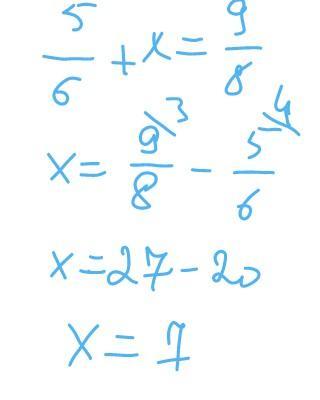 5/6 + x = 9/8
x = 9/8 \3 - 5/6 \4
x = 27 - 20
x = 7